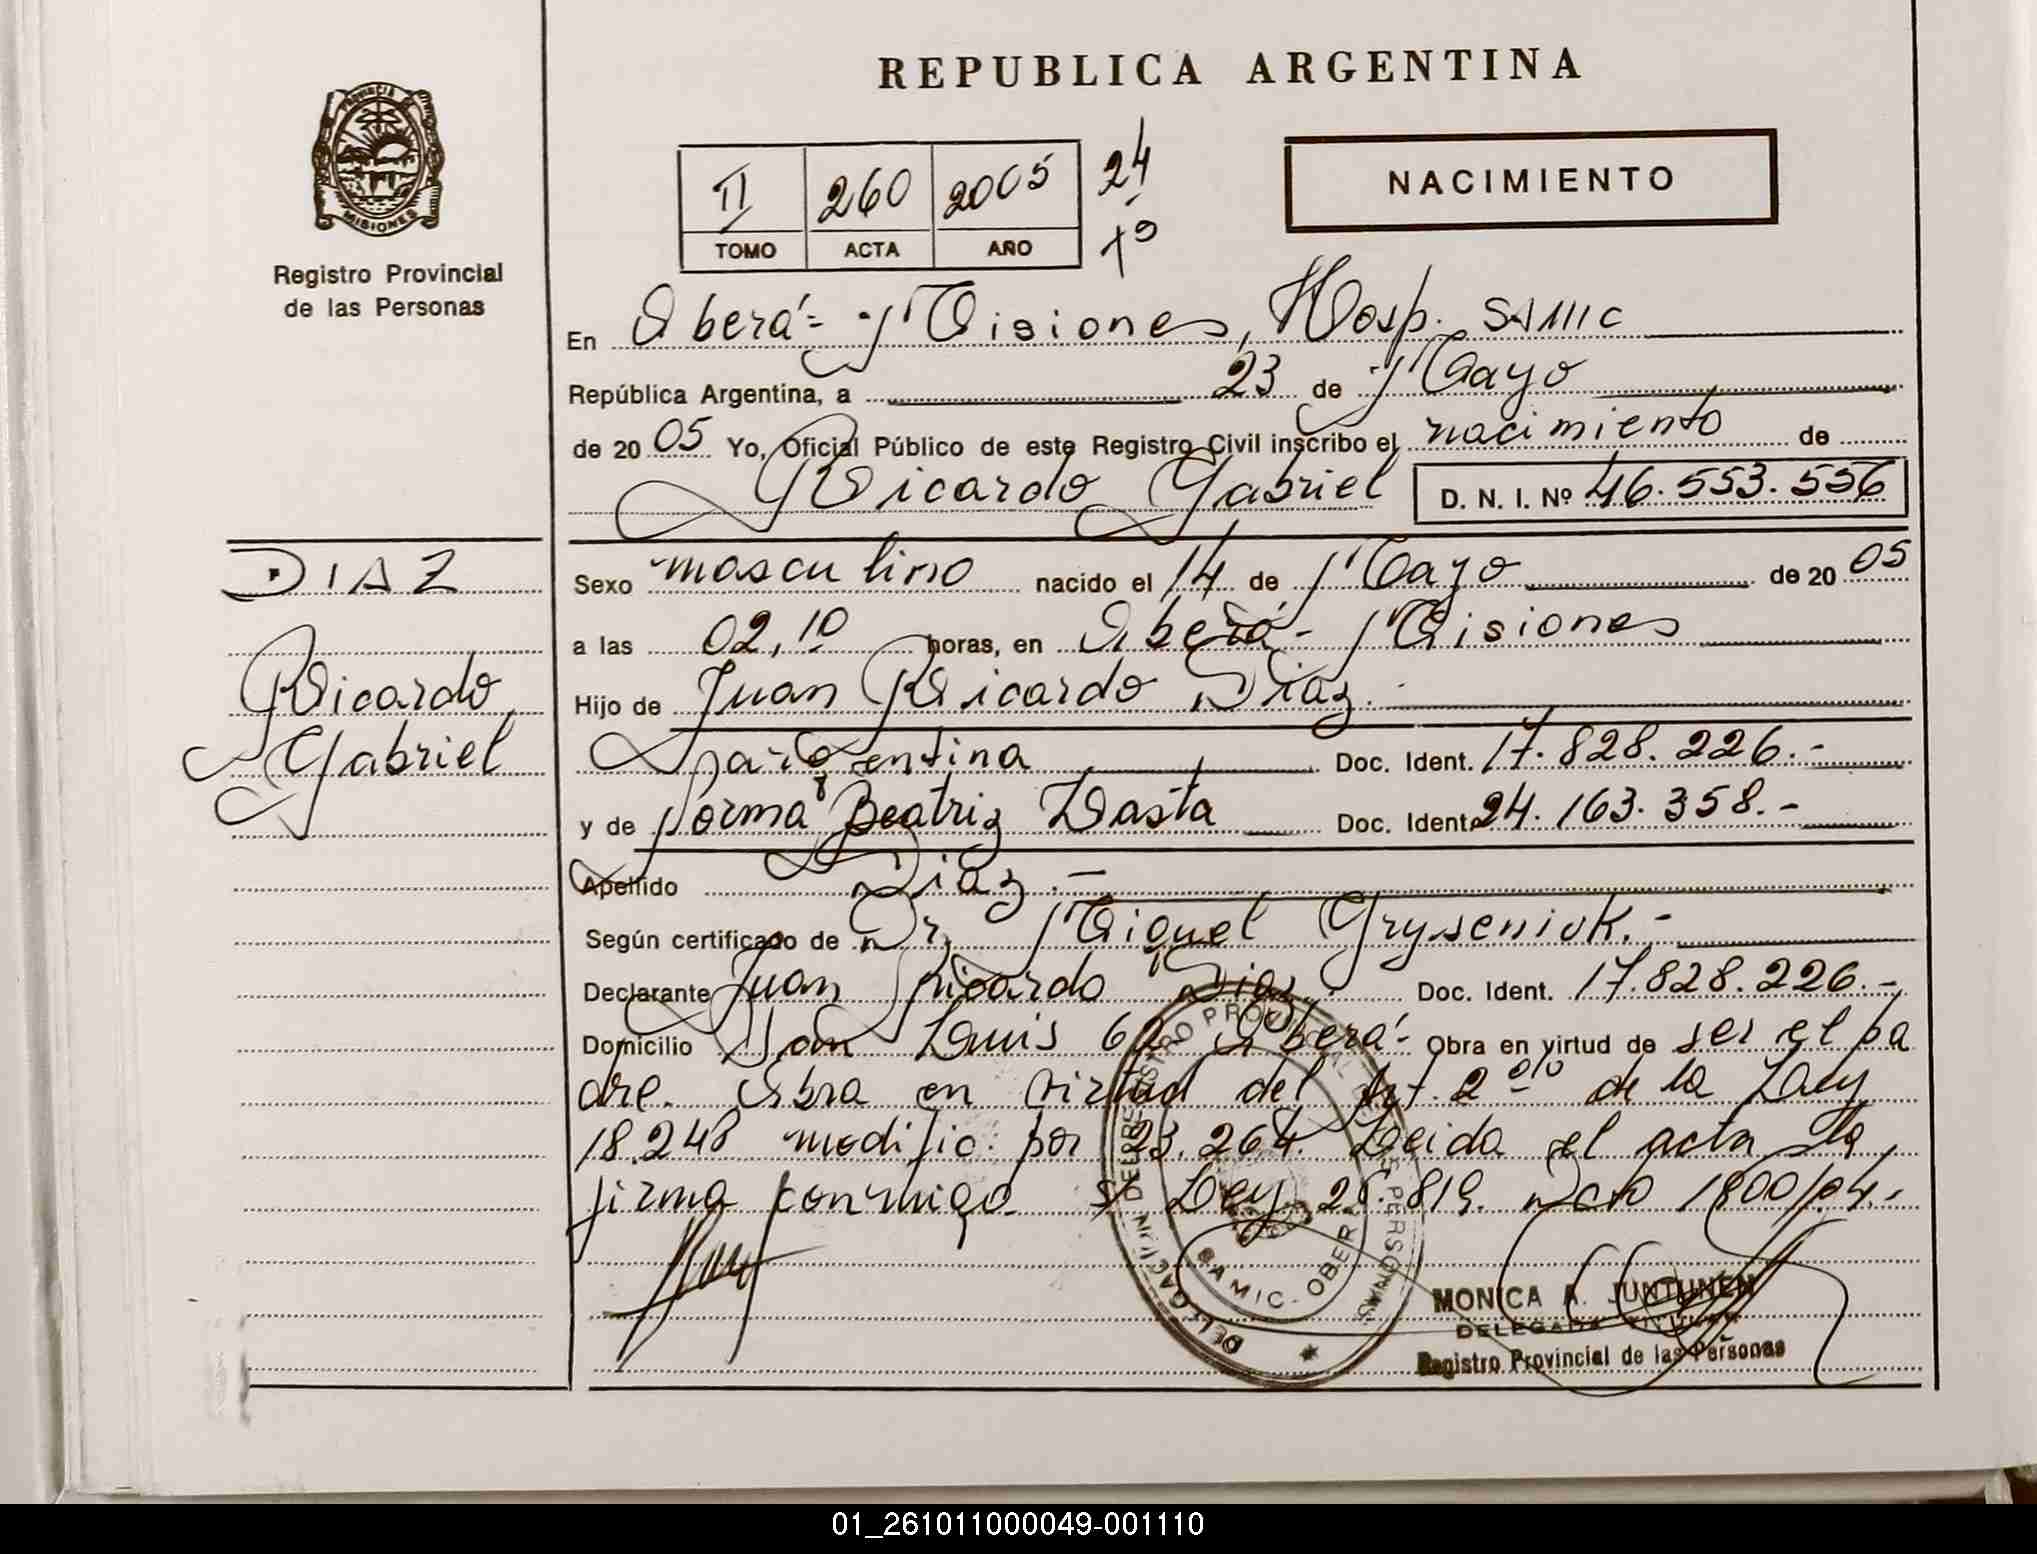 REPUBLICA ARGENTINA
PROVINCIA DE MISIONES
Registro Provincial
de las Personas
II 260 2005 24
TOMO ACTA AÑO 1º
NACIMIENTO
En Oberá = Misiones, Hosp. SAMIC
República Argentina, a 23 de Mayo
de 2005 Yo, Oficial Público de este Registro Civil inscribo el nacimiento de
Ricardo Gabriel D. N. I. Nº 46.553.556
DIAZ
Ricardo
Gabriel
Sexo masculino nacido el 14 de Mayo de 2005
a las 02,10 horas, en Oberá - Misiones
Hijo de Juan Ricardo Diaz.
Argentina Doc. Ident. 17.828.226.-
y de Norma Beatriz Dasta Doc. Ident. 24.163.358.-
Apellido Diaz.-
Según certificado de Dr. Miguel
Declarante Juan Ricardo Diaz. Doc. Ident. 17.828.226.-
Domicilio San Luis 62 Oberá- Obra en virtud de ser el pa
dre. Obra en virtud del Art. 2º de la Ley
18.248 modific. por 23.264. Leida el acta la
firma conmigo. S/ Ley 25.819. Dcto 1800/04.-
REGISTRO PROVINCIAL DE LAS PERSONAS
DELEGACION
SAMIC - OBERA
MONICA A. JUNTUNEN
DELEGADA TITULAR
Registro Provincial de las Personas
01_261011000049-001110